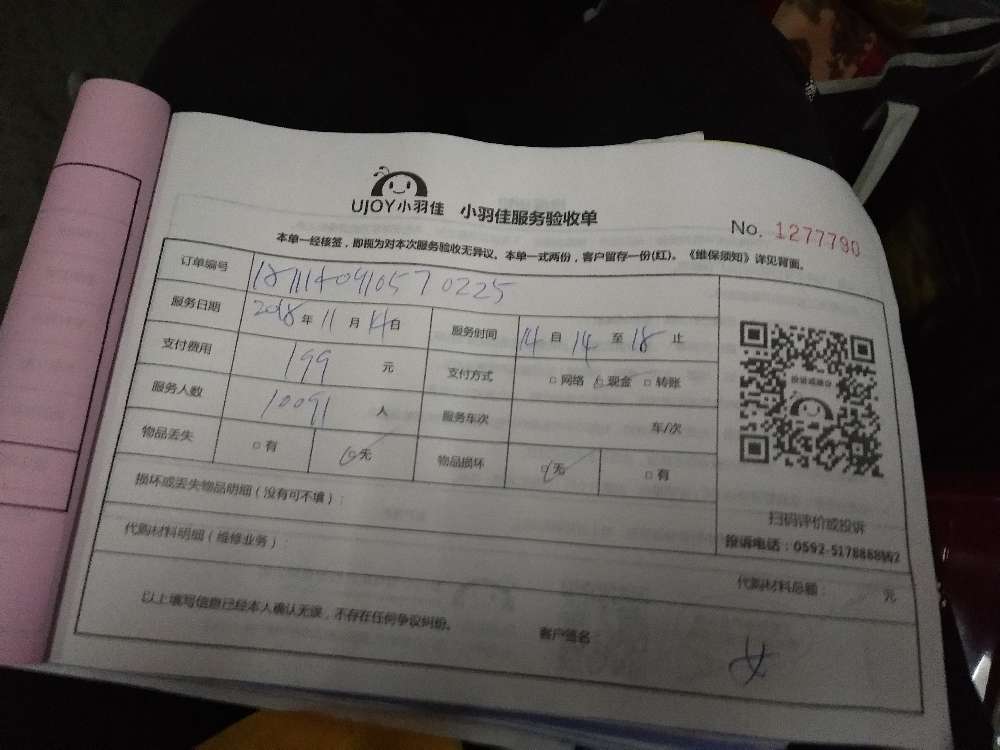 UJOY小羽佳 小羽佳服务验收单
No. 1277790
本单一经核签，即视为对本次服务验收无异议。本单一式两份，客户留存一份(红)。《维保须知》详见背面。
订单编号 181114091057 0225
服务日期 2018 年 11 月 14 日 服务时间 14 自 14 至 18 止
支付费用 199 元 支付方式 □ 网络 □ 现金 □ 转账
服务人数 10091 人 服务车次 车/次
物品丢失 □ 有 □ 无 物品损坏 □ 无 □ 有
损坏或丢失物品明细（没有可不填）：
扫码评价或投诉
投诉电话：0592-5178868转2
代购材料明细（维修业务）：
代购材料总额： 元
以上填写信息已经本人确认无误，不存在任何争议纠纷。
客户签名